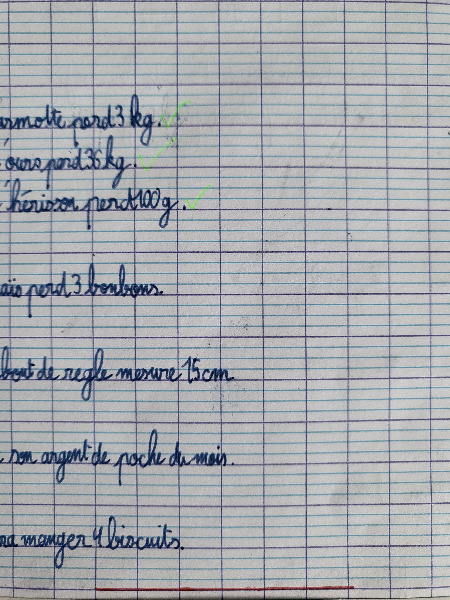 armotte perd 3 kg.
ours perd 36 kg.
hérisson perd 100g.
aïs perd 3 bonbons.
bout de regle mesure 15cm
son argent de poche du mois.
ra manger 4 biscuits.